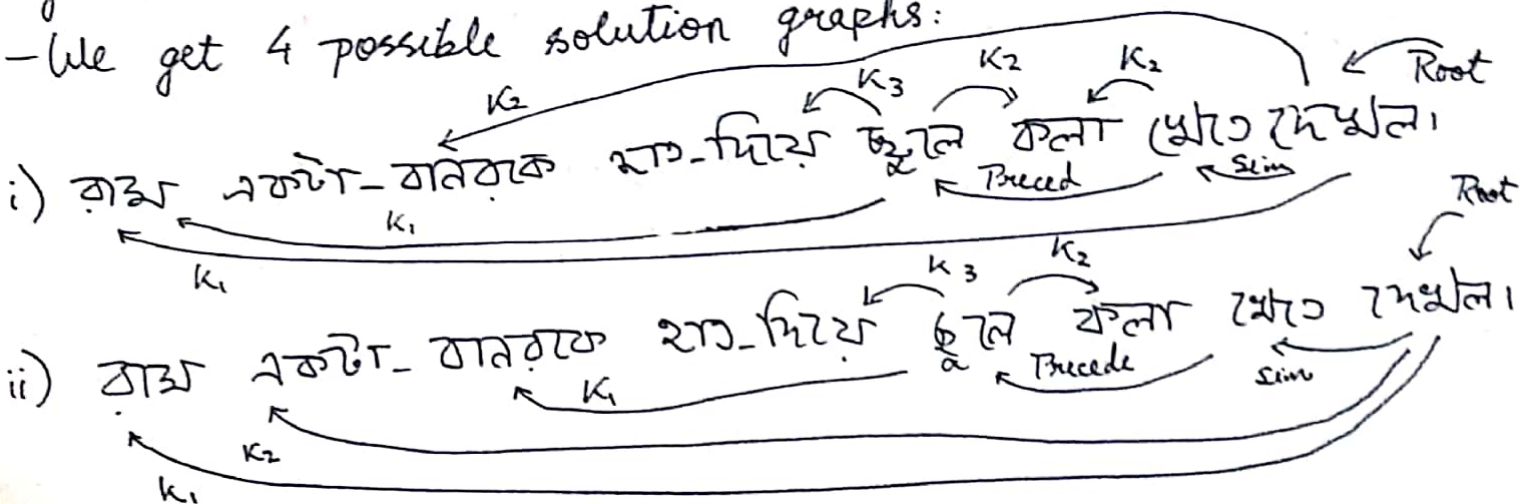 - We get 4 possible solution graphs:
K₂ K₃ K₂ K₂ Root
i) রাম একটা-বানরকে হাত-দিয়ে ছুলে কলা খেতে দেখল।
K₁ Preced Sim
K₁
Root
K₃ K₂
ii) রাম একটা-বানরকে হাত-দিয়ে ছুলে কলা খেতে দেখল।
K₁ Precede Sim
K₂
K₁